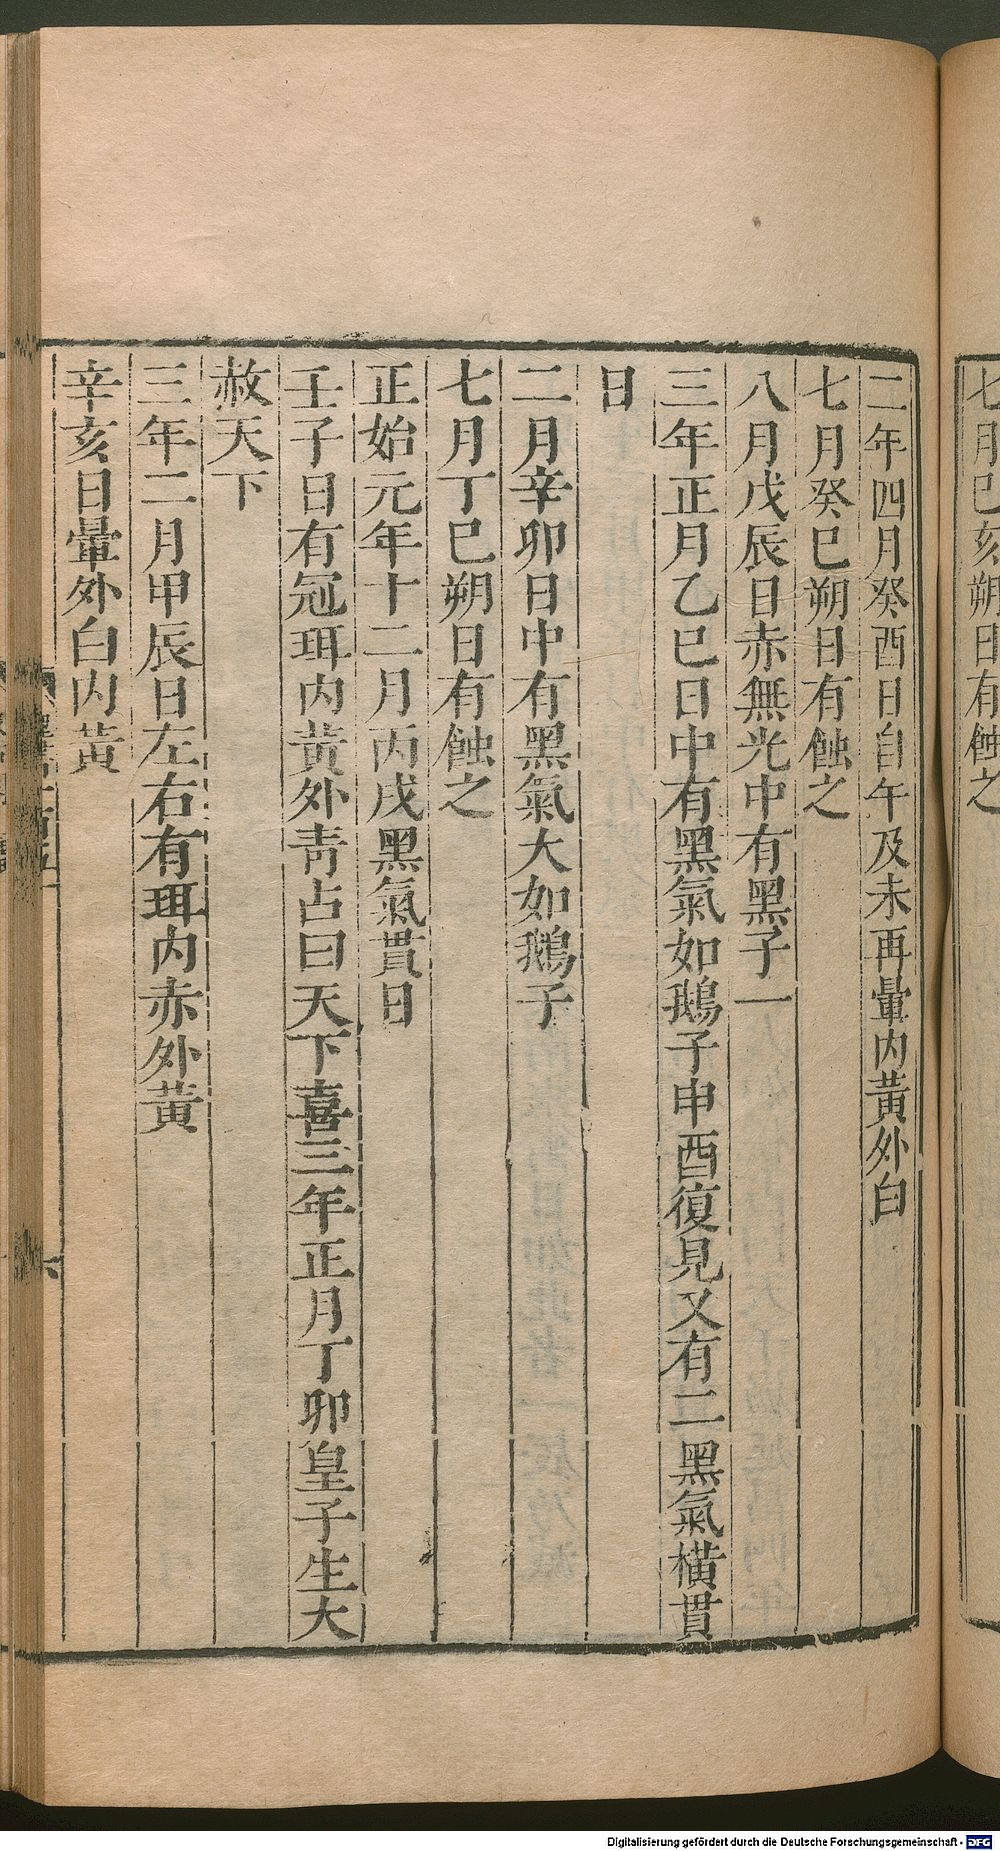 七月巳亥朔日有蝕之
二年四月癸酉日自午及未再暈内黃外白
七月癸巳朔日有蝕之
八月戊辰日赤無光中有黑子一
三年正月乙巳日中有黑氣如鵝子申酉復見又有二黑氣橫貫
日
二月辛卯日中有黑氣大如鵝子
七月丁巳朔日有蝕之
正始元年十二月丙戌黑氣貫日
壬子日有冠珥内黃外靑占曰天下喜三年正月丁卯皇子生大
赦天下
三年二月甲辰日左右有珥内赤外黃
辛亥日暈外白内黃
六
Digitalisierung gefördert durch die Deutsche Forschungsgemeinschaft - DFG